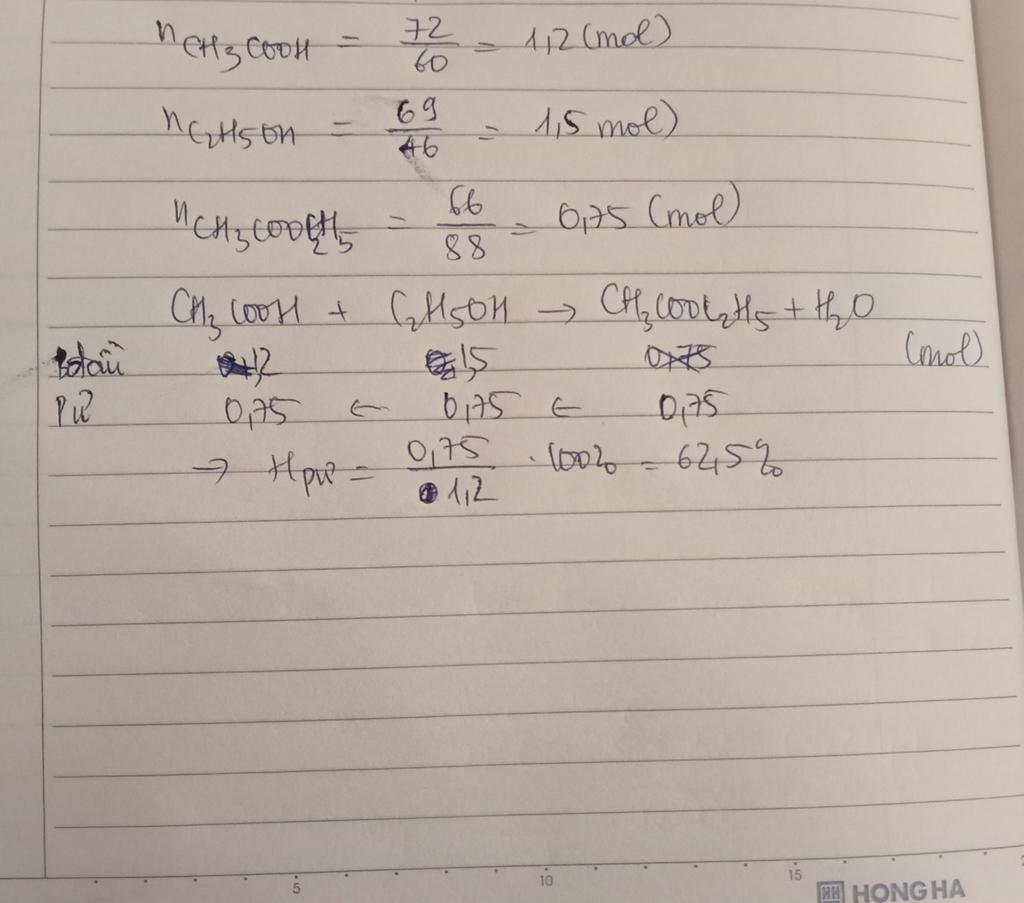 nCH3COOH = 72/60 = 1,2 (mol)
nC2H5OH = 69/46 = 1,5 mol)
nCH3COOC2H5 = 66/88 = 0,75 (mol)
CH3COOH + C2H5OH → CH3COOC2H5 + H2O
1,2 1,5 0,75 (mol)
Pứ 0,75 ← 0,75 ← 0,75
→ Hpứ = 0,75/1,2 . 100% = 62,5%
5 10 15
HONG HA